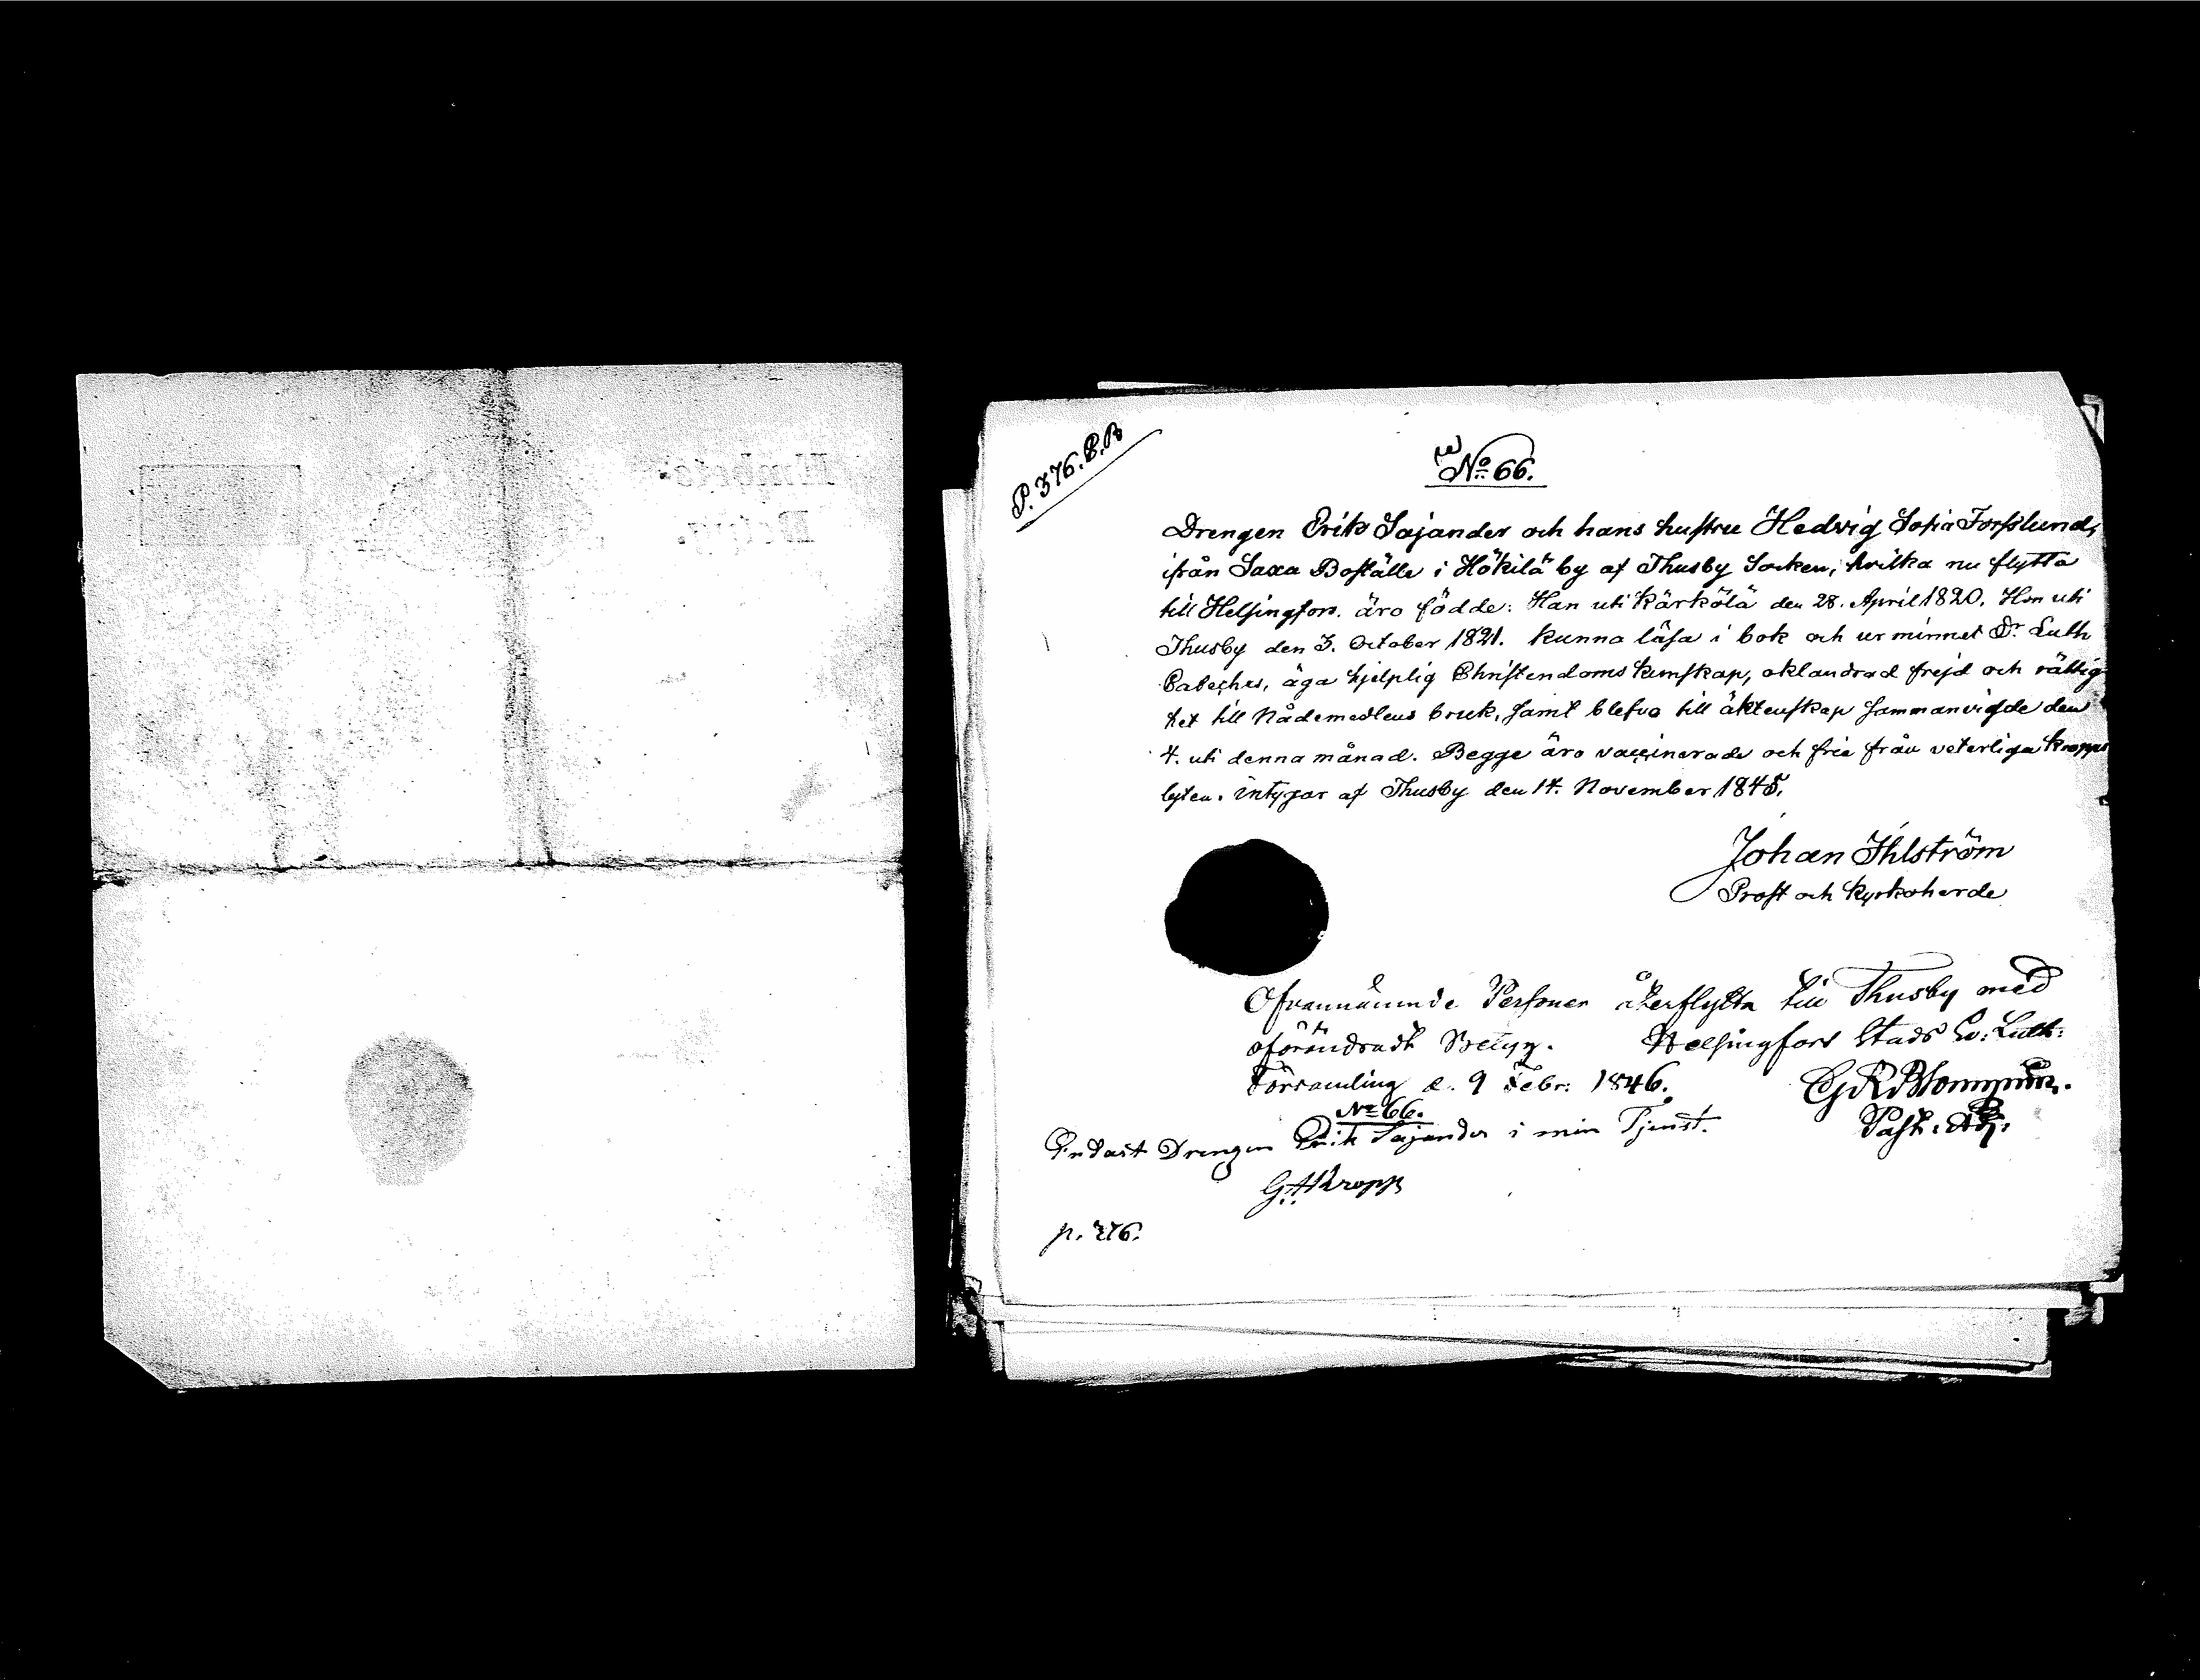 P. 376. C.B
No 66.
Drengen Erik Sajander och hans hustru Hedvig Sofia Forsslund,
ifrån Saxa Boställe i Hökilä by af Thusby Socken, hvilka nu flytta
till Helsingfors. äro födde: Han uti Kärkölä den 28. April 1820. Hon uti
Thusby den 3. October 1821. kunna läsa i bok och ur minnet Dr. Luth
Cateches, äga hjelplig Christendoms kunskap, oklandrad frejd och rättig
het till Nådemedlens bruk, samt blefvo till äktenskap sammanvigde den
4. uti denna månad. Begge äro vaccinerade och frie från veterliga kropps
lyten. intygar af Thusby den 14. November 1845.
Johan Ihlström
Prost och Kyrkoherde
Ofvannämnde Personer återflytta till Thusby med
oförändradt Betyg. Helsingfors Stads Ev: Luth:
Församling d. 9 Febr: 1846.
Past. Adj.
No 66.
Endast Drengen Erik Sajander i min Tjenst.
p. 276.